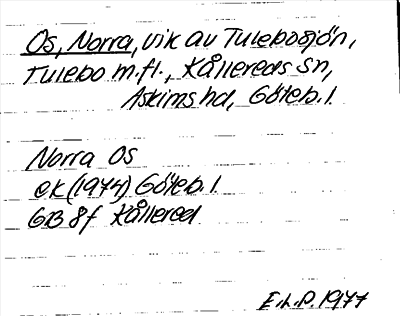 Os, Norra, vik av Tulebosjön,
Tulebo m.fl., Kållereds sn,
Askims hd, Göteb. l.
Norra Os
ek (1974) Göteb. l.
GB 8f Kållered
E.h.P. 1977